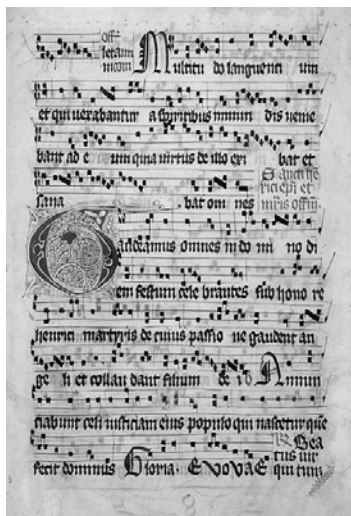 off
letamini
Multitu do languenti um
et qui vexabantur a spiritibus inmun dis venie
bant ad e um quia virtus de illo exi bat et
sana bat om nes
Gaudeamus omnes in do mi no di
em festum cele brantes sub hono re
henrici martyris de cuius passio ne gaudent an
ge li et collau dant filium de i Annun
ciabunt celi iusticiam eius populo qui nascetur que
fecit dominus Gloria. EVOVAE
Bea
tus vir
qui tim